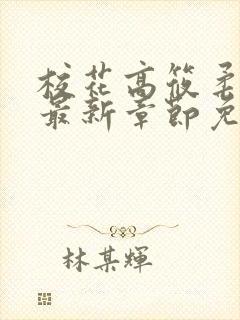 校花高筱柔
最新章節免
林某輝